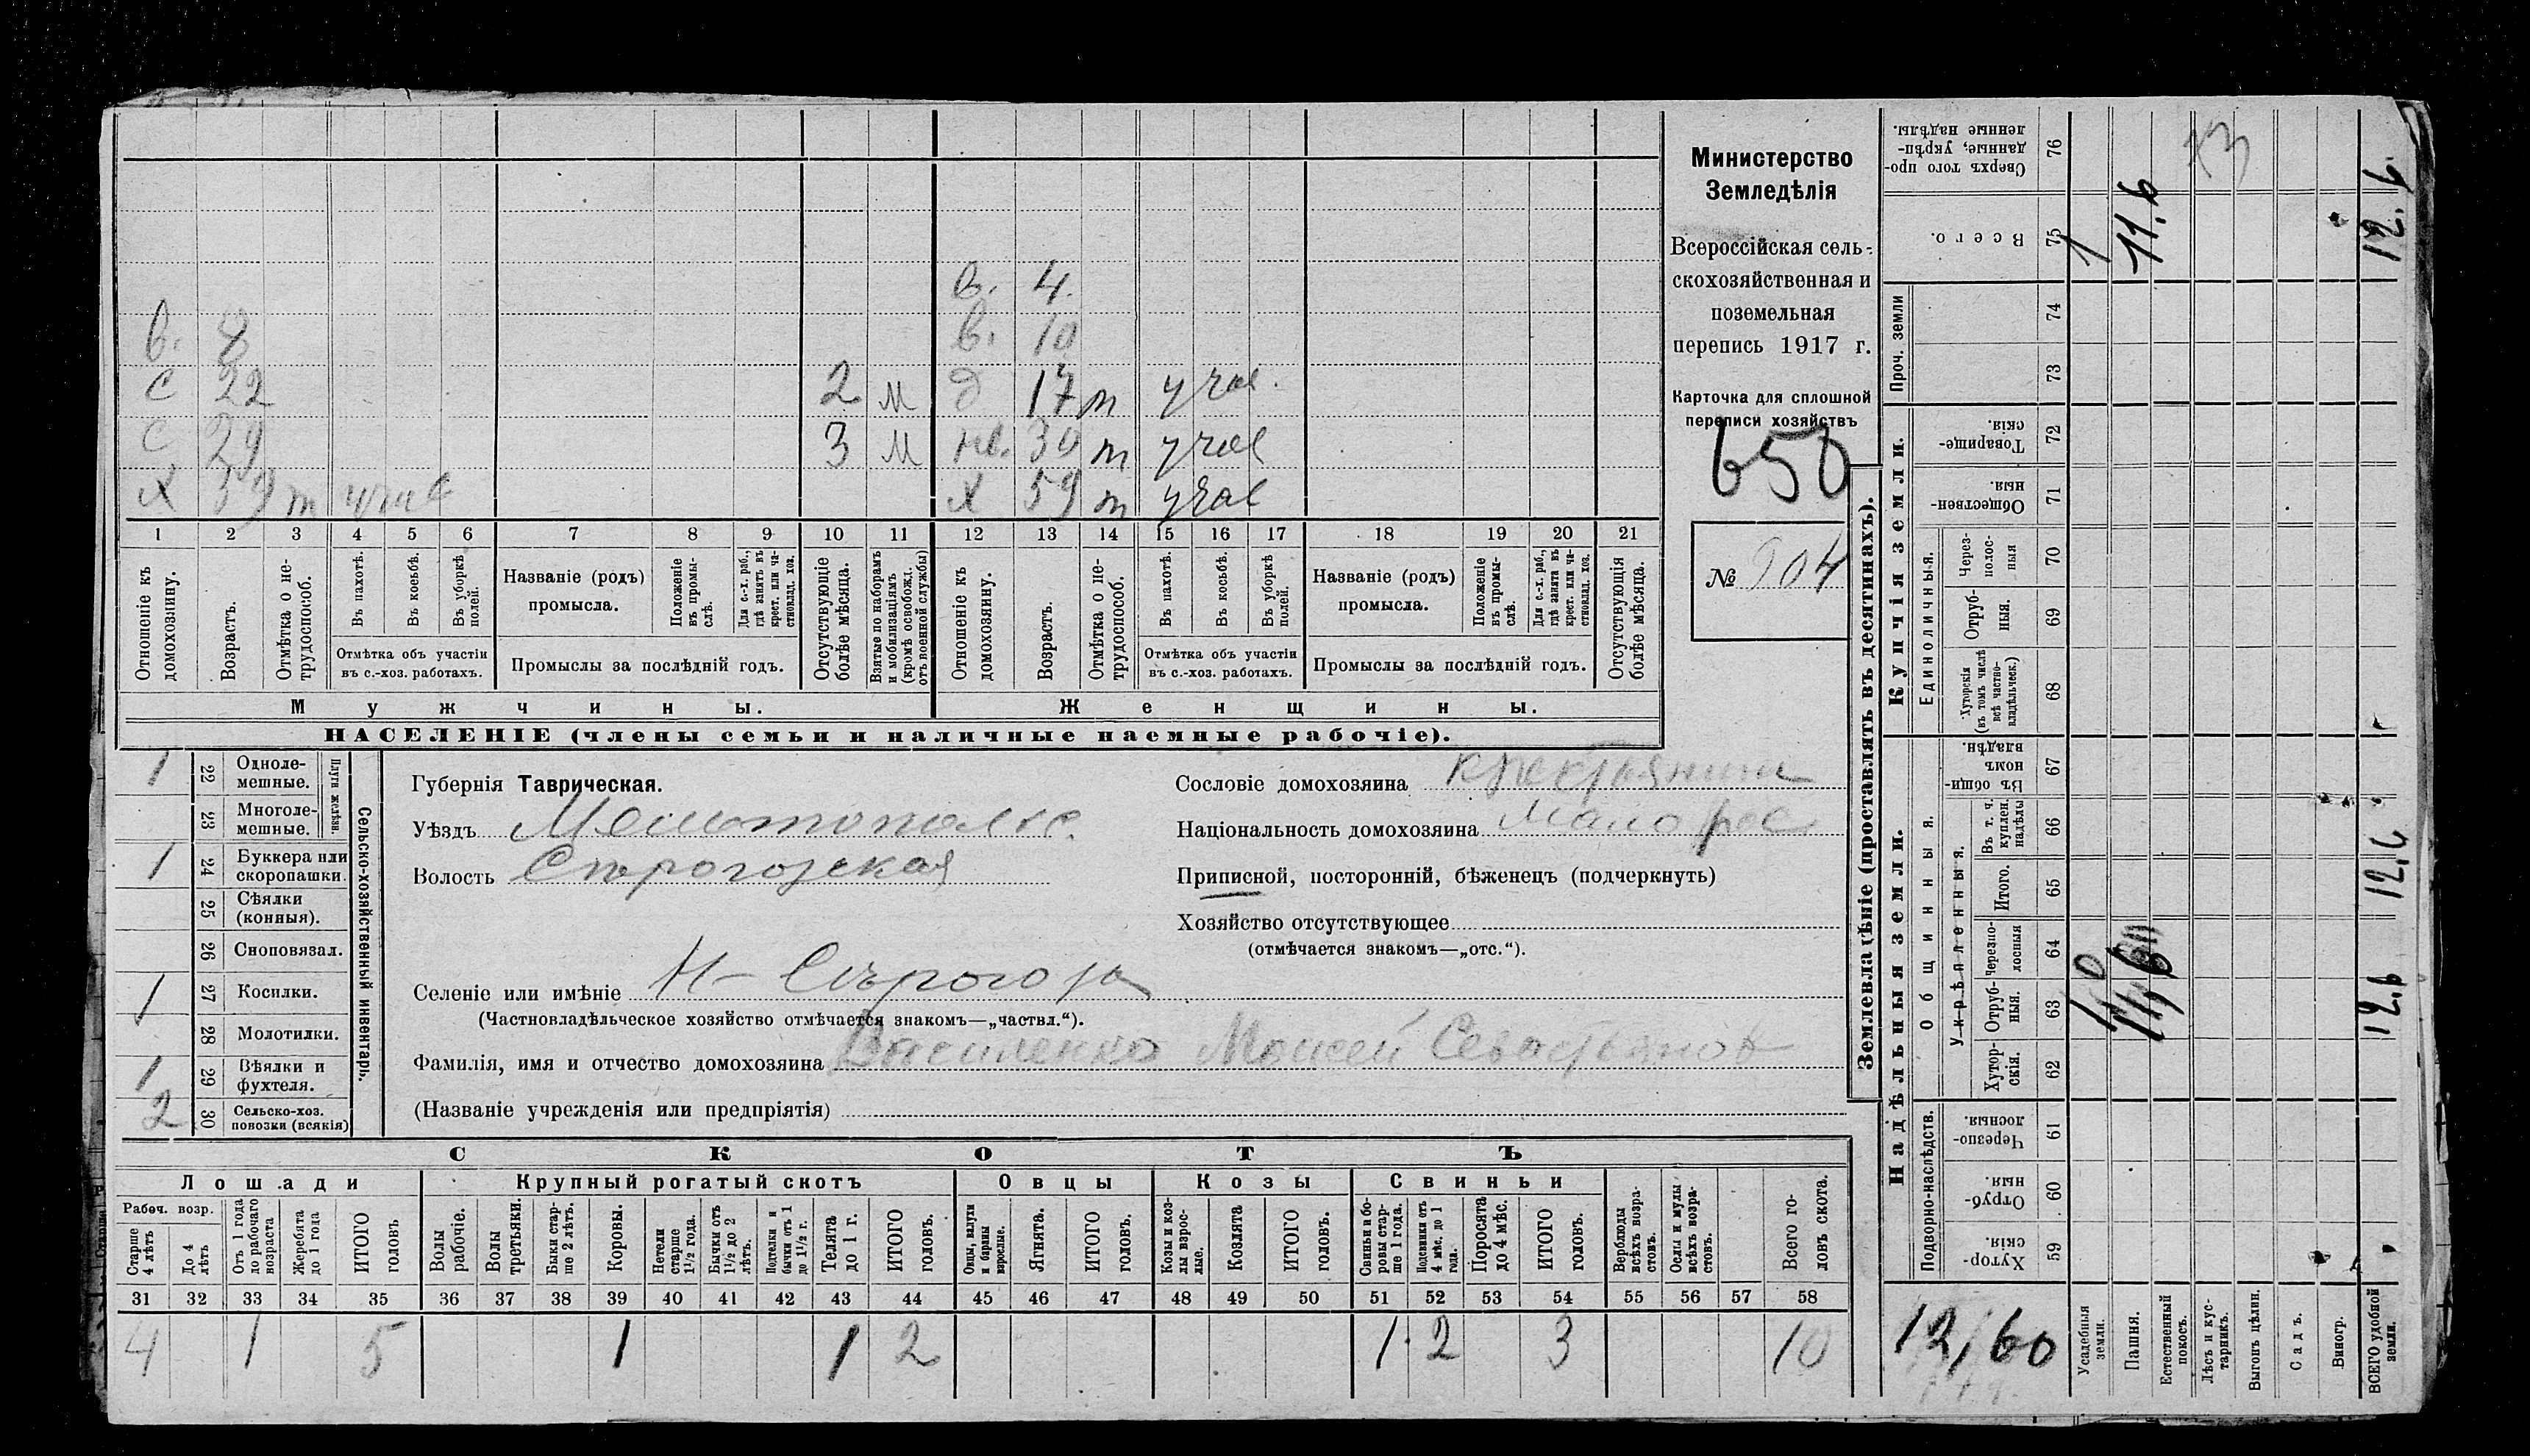 Министерство
Земледѣлія
Всероссійская сель-
скохозяйственная и
поземельная
перепись 1917 г.
Карточка для сплошной
переписи хозяйствъ
650
№ 904
в. 4
в. 8 в. 10
с 22 2 м д 17 т учас.
с 29 3 м нв. 30 т учас
х 59 т учас х 59 т учас
1 2 3 4 5 6 7 8 9 10 11 12 13 14 15 16 17 18 19 20 21
Отношеніе къ домохозяину.
Возрастъ.
Отмѣтка о не-трудоспособ.
Въ пахотѣ.
Въ косьбѣ.
Въ уборкѣ полей.
Отмѣтка объ участіи въ с.-хоз. работахъ.
Названіе (родъ) промысла.
Положеніе въ промы-слѣ.
Для с.-х. раб., гдѣ занятъ въ крест. или ча-стновлад. хоз.
Промыслы за послѣдній годъ.
Отсутствующіе болѣе мѣсяца.
Взятые по наборамъ и мобилизаціямъ (кромѣ освобожд. отъ военной службы)
Отношеніе къ домохозяину.
Возрастъ.
Отмѣтка о не-трудоспособ.
Въ пахотѣ.
Въ косьбѣ.
Въ уборкѣ полей.
Отмѣтка объ участіи въ с.-хоз. работахъ.
Названіе (родъ) промысла.
Положеніе въ промы-слѣ.
Для с.-х. раб., гдѣ занята въ крест. или ча-стновлад. хоз.
Промыслы за послѣдній годъ.
Отсутствующія болѣе мѣсяца.
Мужчины. Женщины.
НАСЕЛЕНІЕ (члены семьи и наличные наемные рабочіе).
Сельско-хозяйственный инвентарь.
Плуги желѣзн.
1 22 Одноле-мешные.
23 Многоле-мешные.
1 24 Буккера или скоропашки.
25 Сѣялки (конныя).
26 Сноповязал.
1 27 Косилки.
28 Молотилки.
1 29 Вѣялки и фухтеля.
2 30 Сельско-хоз. повозки (всякія)
Губернія Таврическая.
Уѣздъ Мелитопольс.
Волость Сѣрогозская
Селеніе или имѣніе Н-Сѣрогозы
(Частновладѣльческое хозяйство отмѣчается знакомъ—„частвл.“).
Фамилія, имя и отчество домохозяина Василенко Моисей Севастьянов
(Названіе учрежденія или предпріятія)
Сословіе домохозяина крестьянин
Національность домохозяина малорос
Приписной, посторонній, бѣженецъ (подчеркнуть)
Хозяйство отсутствующее
(отмѣчается знакомъ—„отс.“).
СКОТЪ
Лошади Крупный рогатый скотъ Овцы Козы Свиньи
Рабоч. возр.
Старше 4 лѣтъ
До 4 лѣтъ
Отъ 1 года до рабочаго возраста
Жеребята до 1 года
ИТОГО головъ
Волы рабочіе.
Волы третьяки.
Быки стар-ше 2 лѣтъ.
Коровы.
Нетели старше 1½ года.
Бычки отъ 1½ до 2 лѣтъ.
Подтелки и бычки отъ 1 до 1½ г.
Телята до 1 г.
ИТОГО головъ.
Овцы, валухи и бараны взрослые.
Ягнята.
ИТОГО головъ.
Козы и коз-лы взрос-лые.
Козлята
ИТОГО головъ.
Свиньи и бо-ровы стар-ше 1 года.
Подсвинки отъ 4 мѣс. до 1 года.
Поросята до 4 мѣс.
ИТОГО головъ.
Верблюды всѣхъ возра-стовъ.
Ослы и мулы всѣхъ возра-стовъ.
Всего го-ловъ скота.
31 32 33 34 35 36 37 38 39 40 41 42 43 44 45 46 47 48 49 50 51 52 53 54 55 56 57 58
4 1 5 1 1 2 1 2 3 10
Землевладѣніе (проставлять въ десятинахъ).
Надѣльныя земли. Купчія земли. Проч. земли
Подворно-наслѣдств. Общинныя. Укрѣпленныя. Единоличныя.
Хутор-скія. 59
Отруб-ныя. 60
Черезпо-лосныя. 61
Хутор-скія. 62
Отруб-ныя. 63
Черезпо-лосныя 64
Итого. 65
Въ т. ч. куплен. надѣлы 66
Въ общи-номъ владѣн. 67
Хуторскія (въ томъ числѣ всѣ частно-владѣльческ.) 68
Отруб-ныя. 69
Через-полос-ныя 70
Обществен-ныя. 71
Товарище-скія. 72
73
74
Всего. 75
Сверхъ того про-данные, укрѣп-ленные надѣлы. 76
12,60
Усадебныя земли. 1
Пашня. 11.6
Естественный покосъ.
Лѣсъ и кус-тарникъ.
Выгонъ цѣлин.
Садъ.
Виногр.
ВСЕГО удобной земли. 12.6 12.6 12.6